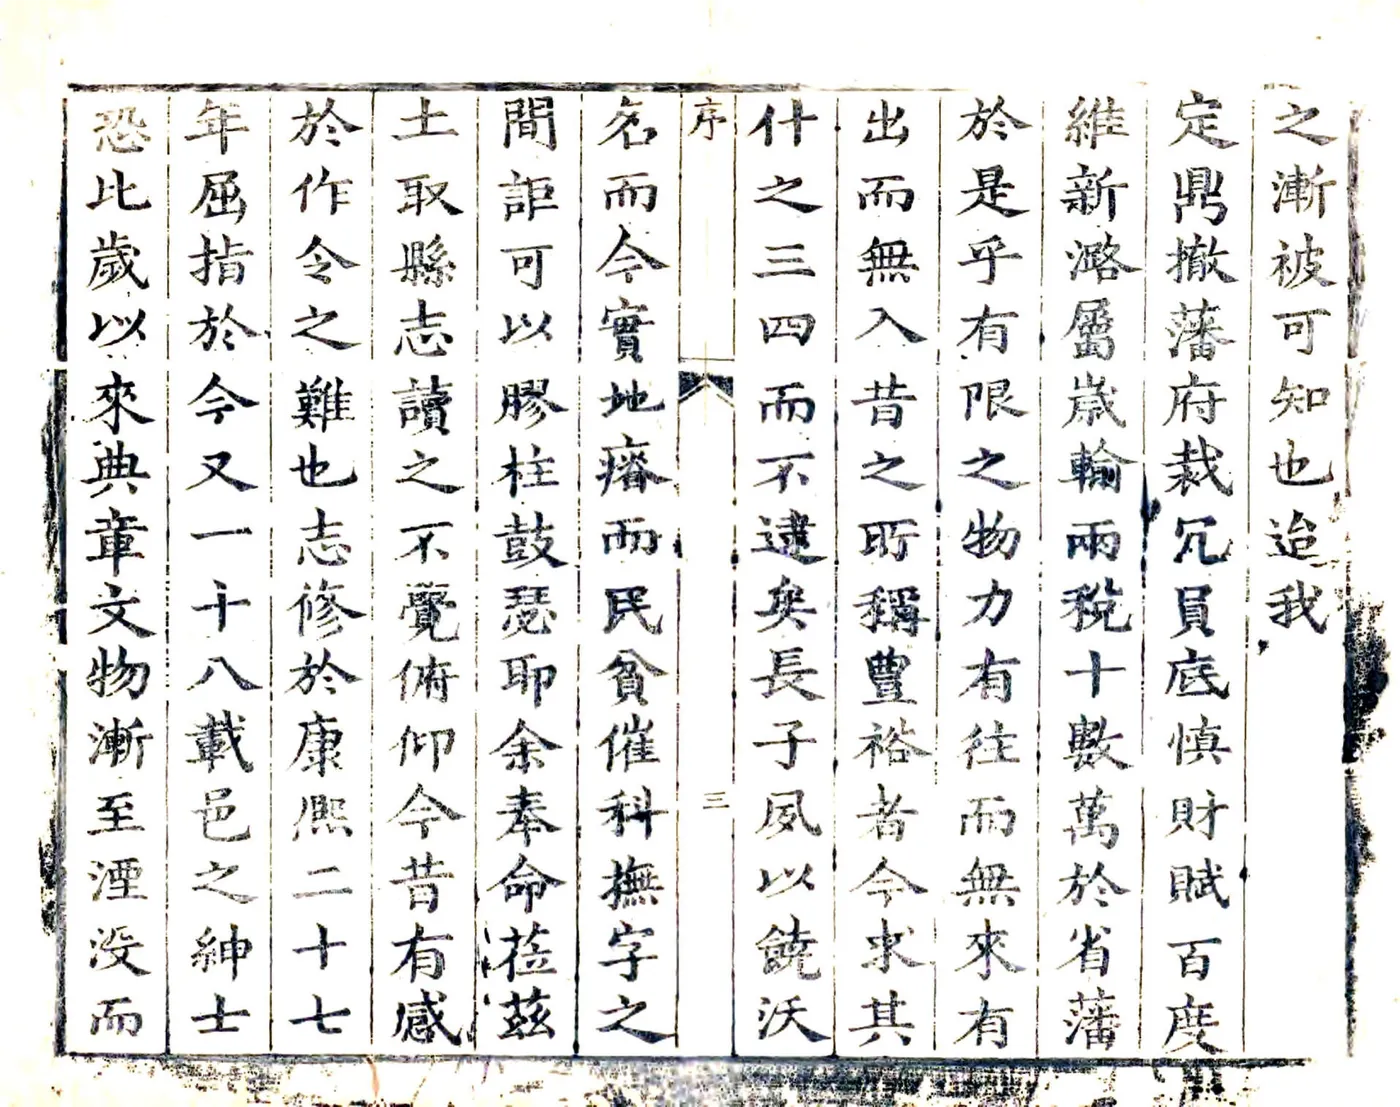 之漸被可知也迨我
定鼎撤藩府裁冗員底慎財賦百度
維新潞屬歲輸兩稅十數萬於省藩
於是乎有限之物力有往而無來有
出而無入昔之所稱豐裕者今求其
什之三四而不逮矣長子夙以饒沃
序
三
名而今實地瘠而民貧催科撫字之
間詎可以膠柱鼓瑟耶余奉命蒞茲
土取縣志讀之不覺俯仰今昔有感
於作令之難也志修於康熙二十七
年屈指於今又一十八載邑之紳士
恐比歲以來典章文物漸至湮没而